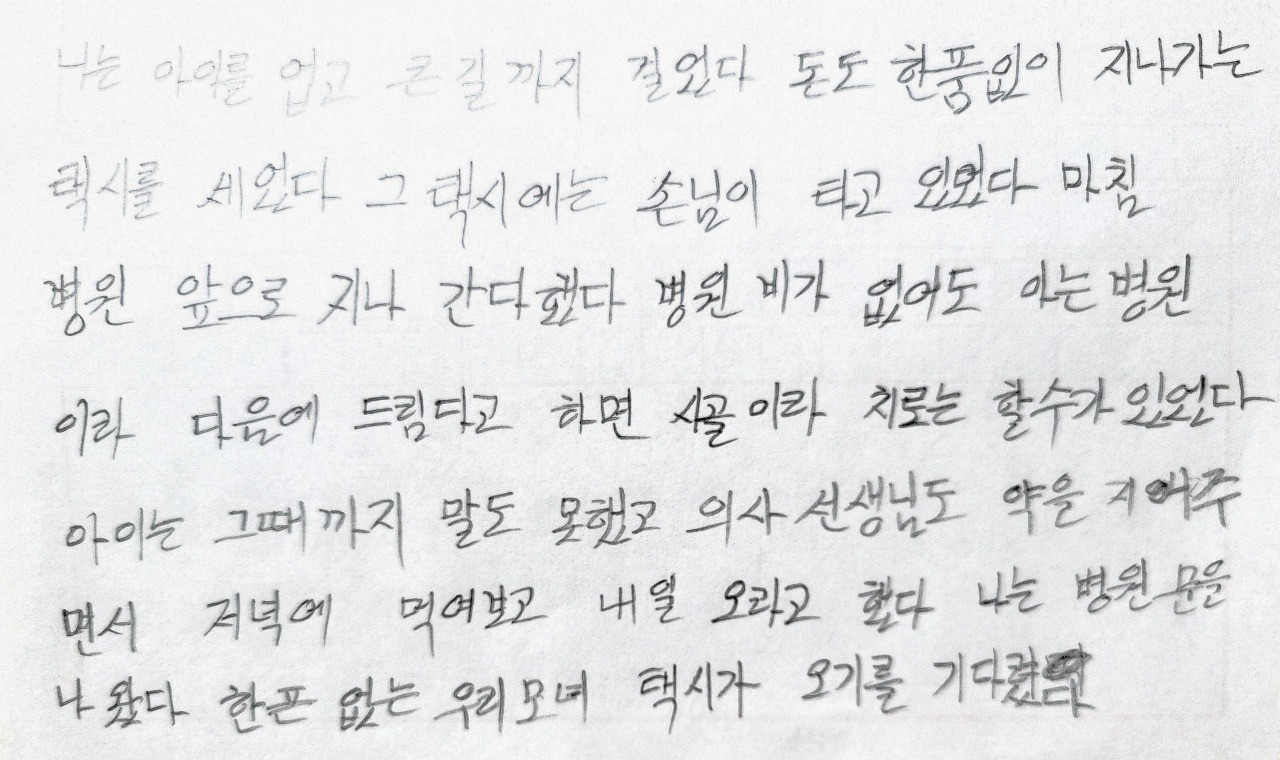 나는 아이를 업고 큰길까지 걸었다 돈도 한품없이 지나가는
택시를 세었다 그 택시에는 손님이 타고 있었다 마침
병원 앞으로 지나 간다했다 병원비가 없어도 아는병원
이라 다음에 드림다고 하면 시골이라 치로는 할수가 있었다
아이는 그때까지 말도 못했고 의사선생님도 약을 지어주
면서 저녁에 먹여보고 내일 오라고 했다 나는 병원문은
나왔다 한푼 없는 우리모녀 택시가 오기를 기다렸